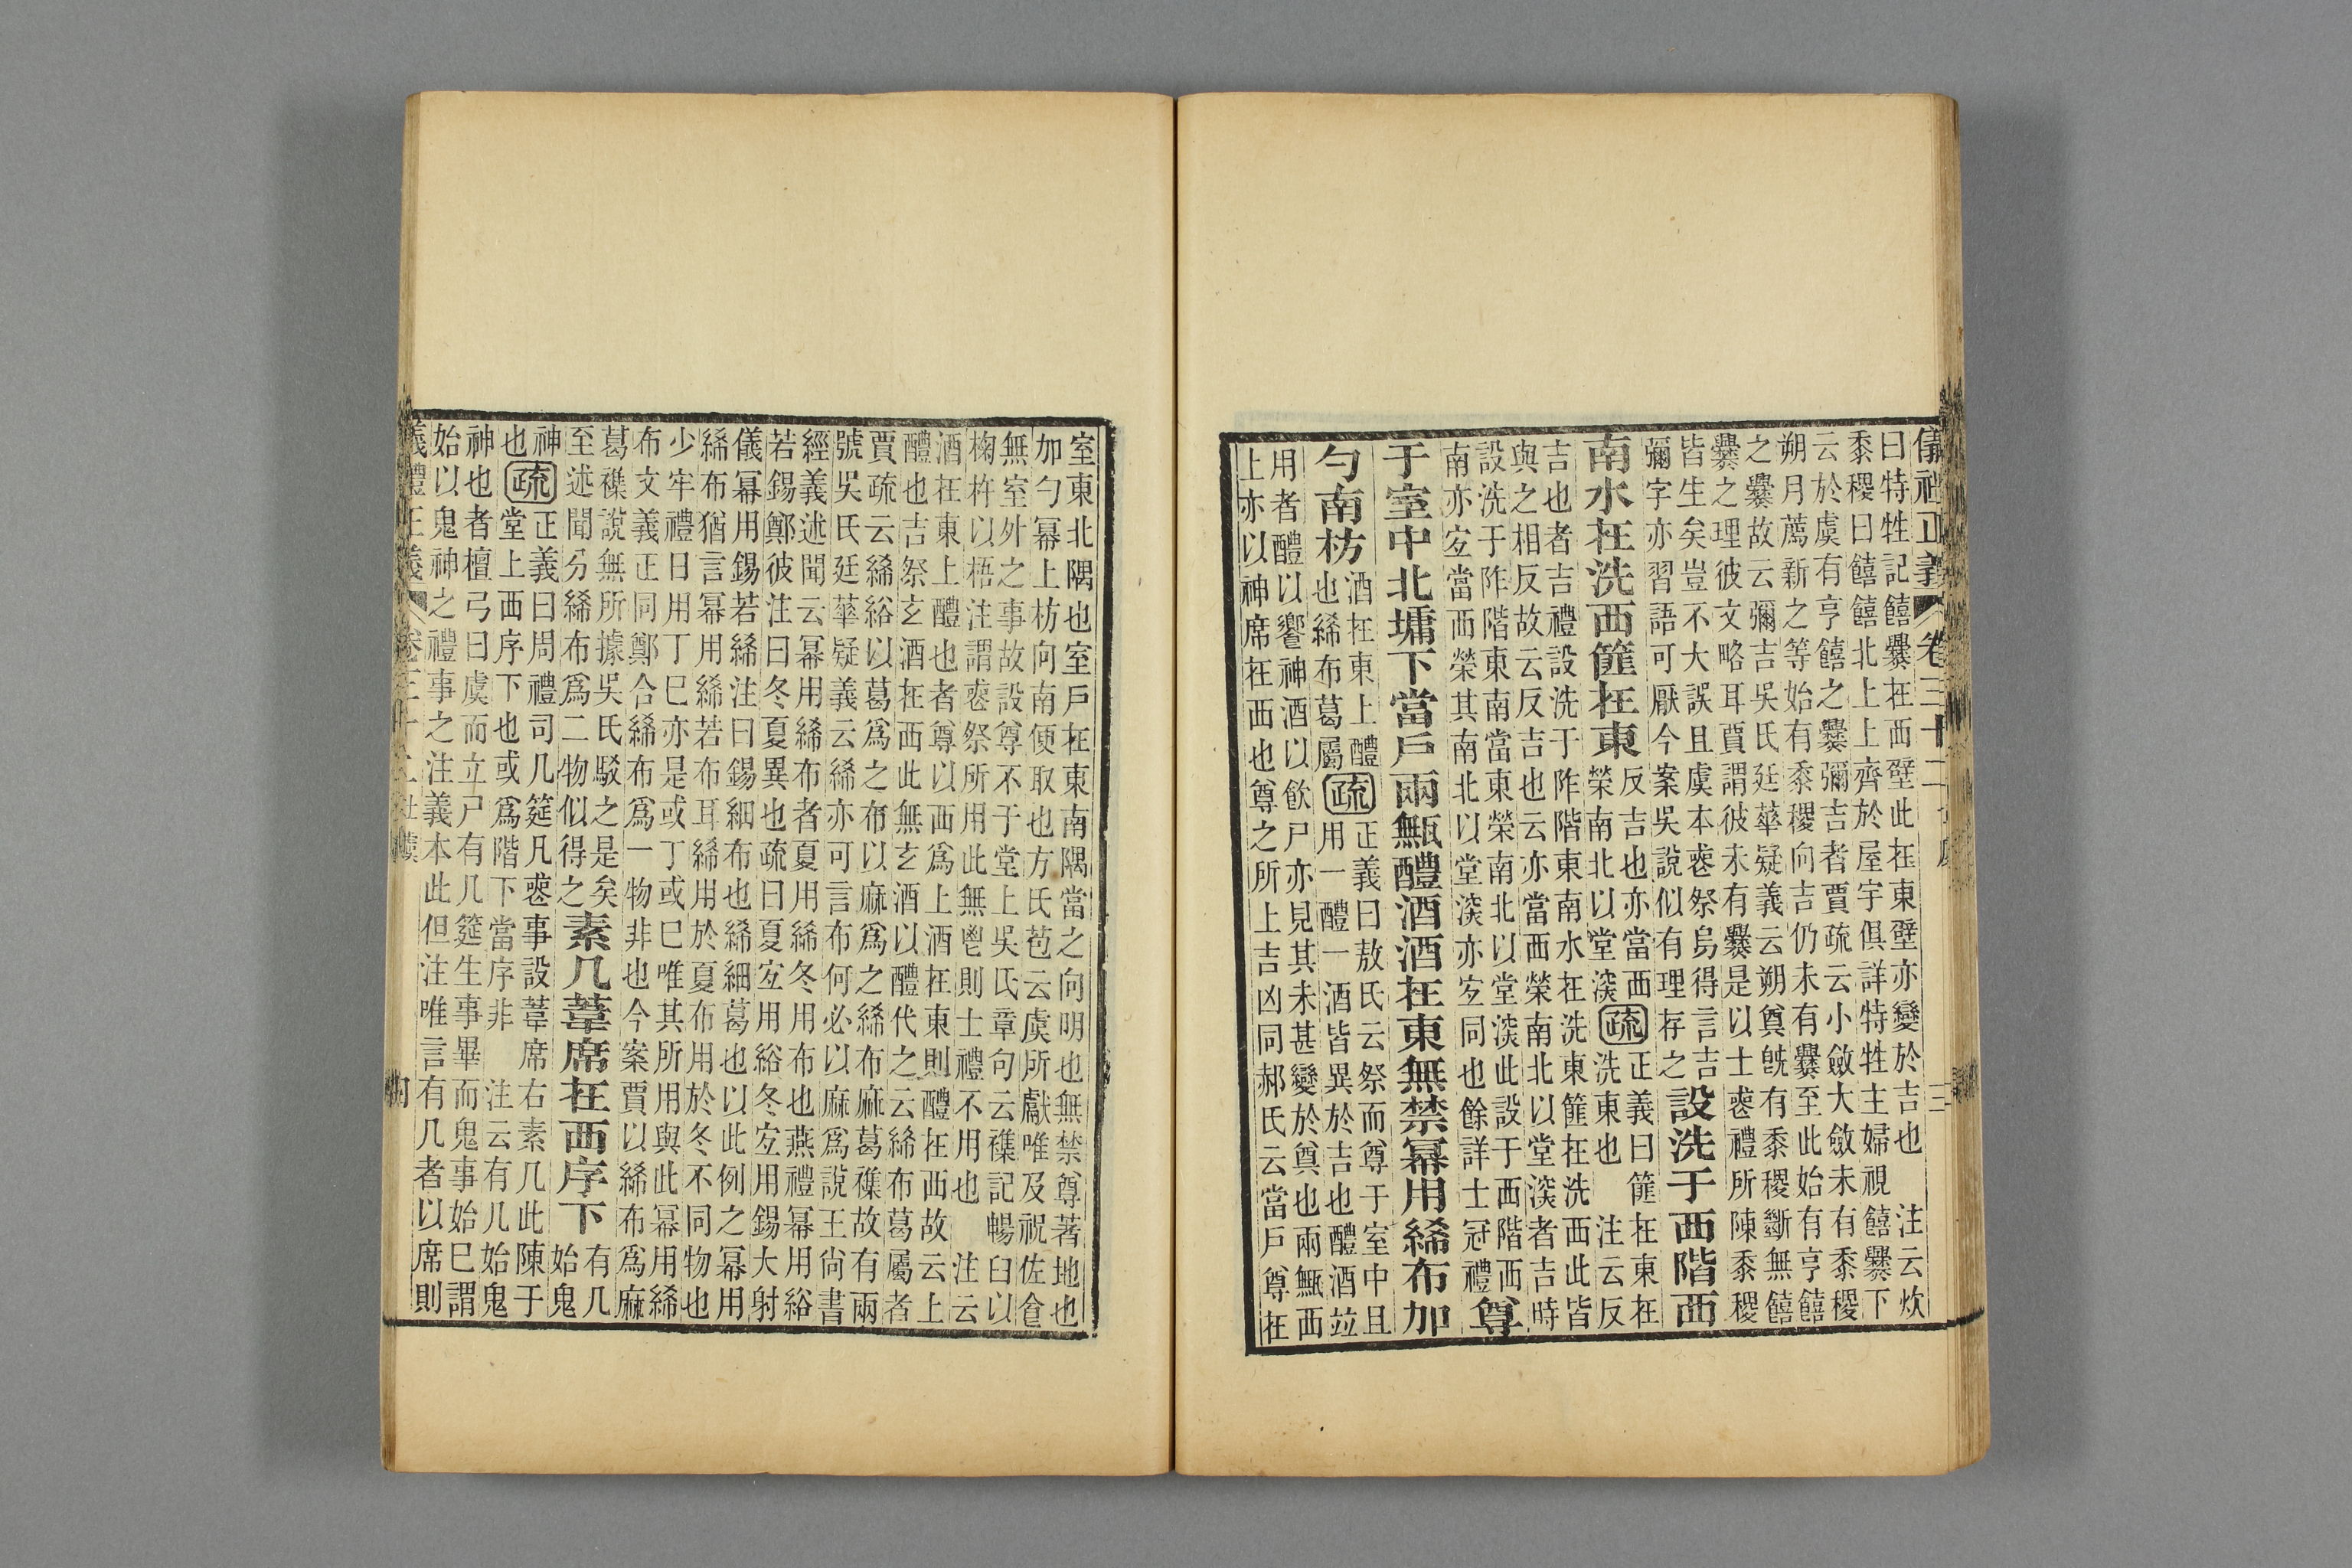 儀禮正義 卷三十二
曰特牲記饎爨在西壁此在東壁亦變於吉也 注云炊
黍稷曰饎饎北上上齊於屋宇俱詳特牲主婦視饎爨下
云於虞有亨饎之爨彌吉者賈疏云小斂大斂未有黍稷
朔月薦新之等始有黍稷向吉仍未有爨至此始有亨饎
之爨故云彌吉吳氏廷華疑義云朔奠旣有黍稷斷無饎
爨之理彼文略耳賈謂彼未有爨是以士喪禮所陳黍稷
皆生矣豈不大誤且虞本喪祭烏得言吉
彌字亦習語可厭今案吳說似有理存之
設洗于西階西
南水在洗西篚在東
反吉也亦當西
榮南北以堂深
疏
正義曰篚在東在
洗東也 注云反
吉也者吉禮設洗于阼階東南水在洗東篚在洗西此皆
與之相反故云反吉也云亦當西榮南北以堂深者吉時
設洗于阼階東南當東榮南北以堂深此設于西階西
南亦宜當西榮其南北以堂深亦宜同也餘詳士冠禮
尊
于室中北墉下當戶兩甒醴酒酒在東無禁冪用絺布加
勺南枋
酒在東上醴
也絺布葛屬
疏
正義曰敖氏云祭而尊于室中且
用一醴一酒皆異於吉也醴酒竝
用者醴以饗神酒以飮尸亦見其未甚變於奠也兩甒西
上亦以神席在西也尊之所上吉凶同郝氏云當戶尊在
室東北隅也室戶在東南隅當之向明也無禁尊著地也
加勺冪上枋向南便取也方氏苞云虞所獻唯及祝佐食
無室外之事故設尊不于堂上吳氏章句云襍記暢臼以
椈杵以梧注謂喪祭所用此無鬯則士禮不用也 注云
酒在東上醴也者尊以西爲上酒在東則醴在西故云上
醴也吉祭玄酒在西此無玄酒以醴代之云絺布葛屬者
賈疏云絺綌以葛爲之布以麻爲之絺布麻葛襍故有兩
號吳氏廷華疑義云絺亦可言布何必以麻爲說王尙書
經義述聞云冪用絺布者夏用絺冬用布也燕禮冪用綌
若錫鄭彼注曰冬夏異也疏曰夏宜用綌冬宜用錫大射
儀冪用錫若絺注曰錫細布也絺細葛也以此例之冪用
絺布猶言冪用絺若布耳絺用於夏布用於冬不同物也
少牢禮日用丁巳亦是或丁或巳唯其所用與此冪用絺
布文義正同鄭合絺布爲一物非也今案賈以絺布爲麻
葛襍說無所據吳氏駁之是矣
至述聞分絺布爲二物似得之
素几葦席在西序下
有几
始鬼
神
也
疏
正義曰周禮司几筵凡喪事設葦席右素几此陳于
堂上西序下也或爲階下當序非 注云有几始鬼
神也者檀弓曰虞而立尸有几筵生事畢而鬼事始巳謂
始以鬼神之禮事之注義本此但注唯言有几者以席則
儀禮正義 卷三十二